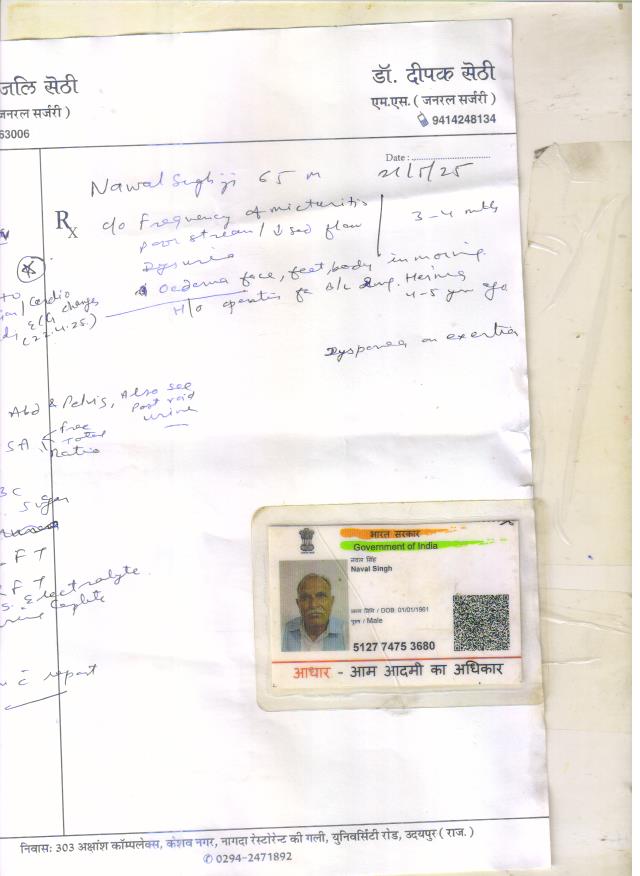 जलि सेठी
जनरल सर्जरी )
63006
डॉ. दीपक सेठी
एम.एस. ( जनरल सर्जरी )
9414248134
Date :
21/5/25
Nawal Singh ji 65 m
Rx
c/o Frequency of micturitis
poor stream / ↓sed flow
Dysuria
3-4 mths
Oedema face, feet, body in morning
H/o operation for B/L Ing. Hernia
4-5 yrs ago
Dyspnoea on exertion
Cardio
ECG changes
(22.4.25)
Abd & Pelvis, Also see
Post void
urine
SA
free
Total
ratio
BC
Sugar
FT
FT
S. Electrolyte
c report
भारत सरकार
Government of India
नवाल सिंह
Naval Singh
जन्म तिथि / DOB: 01/01/1961
पुरुष / Male
5127 7475 3680
आधार - आम आदमी का अधिकार
निवास: 303 अक्षांश कॉम्पलेक्स, केशव नगर, नागदा रेस्टोरेन्ट की गली, युनिवर्सिटी रोड, उदयपुर ( राज. )
0294-2471892